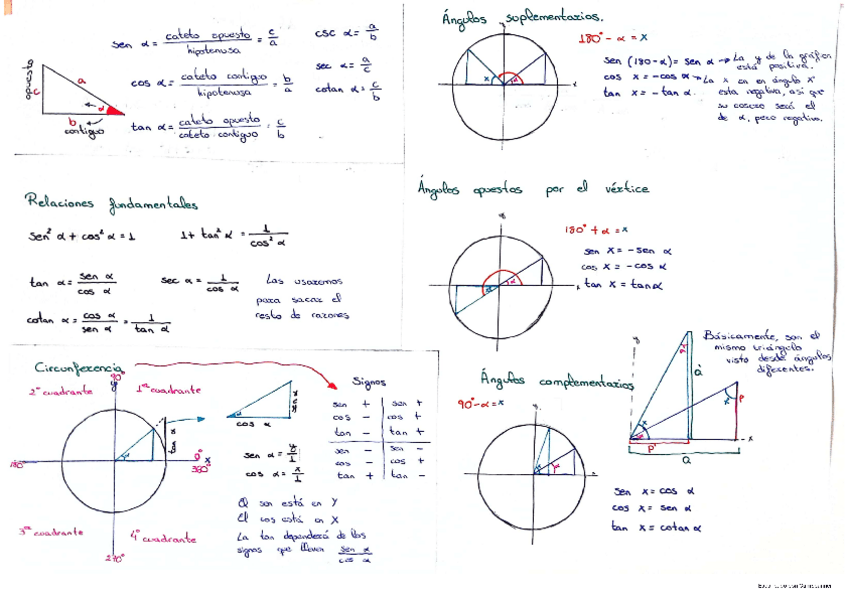 sen α = cateto opuesto / hipotenusa = c/a
csc α = a/b
cos α = cateto contiguo / hipotenusa = b/a
sec α = a/c
cotan α = c/b
tan α = cateto opuesto / cateto contiguo = c/b
opuesto
c
a
α
b
contiguo
Relaciones fundamentales
sen² α + cos² α = 1
1 + tan² α = 1 / cos² α
tan α = sen α / cos α
sec α = 1 / cos α
cotan α = cos α / sen α = 1 / tan α
Las usaremos
para sacar el
resto de razones
Circunferencia
90°
2º cuadrante
1er cuadrante
180°
0°
360°
x
tan α
α
3er cuadrante
4º cuadrante
270°
sen α
cos α
sen α =
cos α = x/1
El sen está en Y
El cos está en X
La tan dependerá de los
signos que lleven sen α / cos α
Signos
sen + sen +
cos − cos +
tan − tan +
sen − sen −
cos − cos +
tan + tan −
Ángulos suplementarios.
180° − α = x
sen (180−α) = sen α → La y de la gráfica
está positiva.
cos x = −cos α → La x en en ángulo X
esta negativa, asi que
su coseno será el
de α, pero negativo.
tan x = −tan α
Ángulos opuestos por el vértice
180° + α = x
sen x = −sen α
cos x = −cos α
tan x = tan α
Ángulos complementarios
90° − α = x
Básicamente, son el
mismo triángulo
visto desde ángulos
diferentes.
P
a
sen x = cos α
cos x = sen α
tan x = cotan α